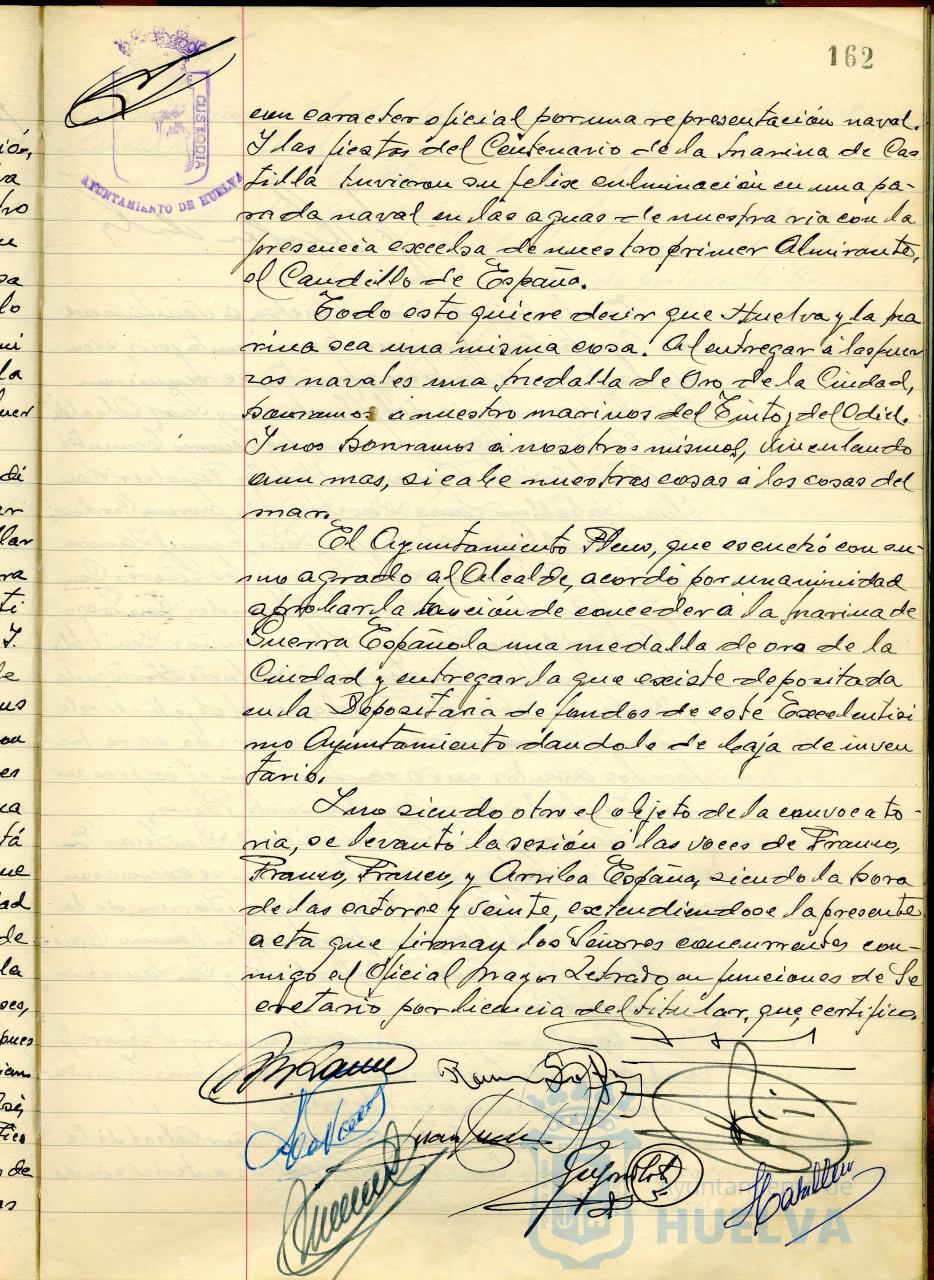 162
CUSTODIA
AYUNTAMIENTO DE HUELVA
con caracter oficial por una representación naval.
Y las fiestas del Centenario de la Marina de Cas
tilla tuvieron su felix culminación en una pa-
rada naval en las aguas de nuestra ria con la
presencia excelsa de nuestro primer Almirante,
el Caudillo de España.
Todo esto quiere decir que Huelva y la Ma
rina sea una misma cosa. Al entregar á las fuer
zas navales una Medalla de Oro de la Ciudad,
honramos á nuestro marinos del Tinto y del Odiel.
Y nos honramos á nosotros mismos, vinculando
aun mas, si cabe nuestras cosas á las cosas del
mar.
El Ayuntamiento Pleno, que escuchó con su-
mo agrado al Alcalde, acordó por unanimidad
aprobar la moción de conceder á la Marina de
Guerra Española una medalla de oro de la
Ciudad y entregar la que existe depositada
en la Depositaria de fondos de este Excelentisi
mo Ayuntamiento dandole de baja de inven
tario.
Y no siendo otro el objeto de la convocato-
ria, se levantó la sesión á las voces de Franco,
Franco, Franco, y Arriba España, siendo la hora
de las catorce y veinte, extendiendose la presente
acta que firman los Señores concurrentes con-
migo el Oficial Mayor Letrado en funciones de Se
cretario por licencia del titular, que, certifico.
Ayuntamiento de
HUELVA